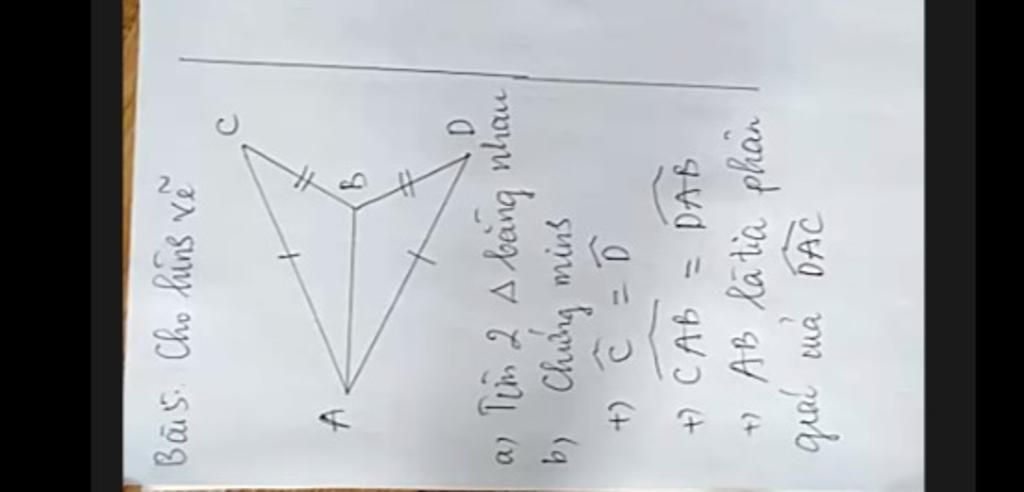 Bài 5. Cho hình vẽ
C
B
D
A
a) Tìm 2 Δ bằng nhau
b) Chứng minh
+) Ĉ = D̂
+) CAB̂ = DAB̂
+) AB là tia phân
giác của DAĈ